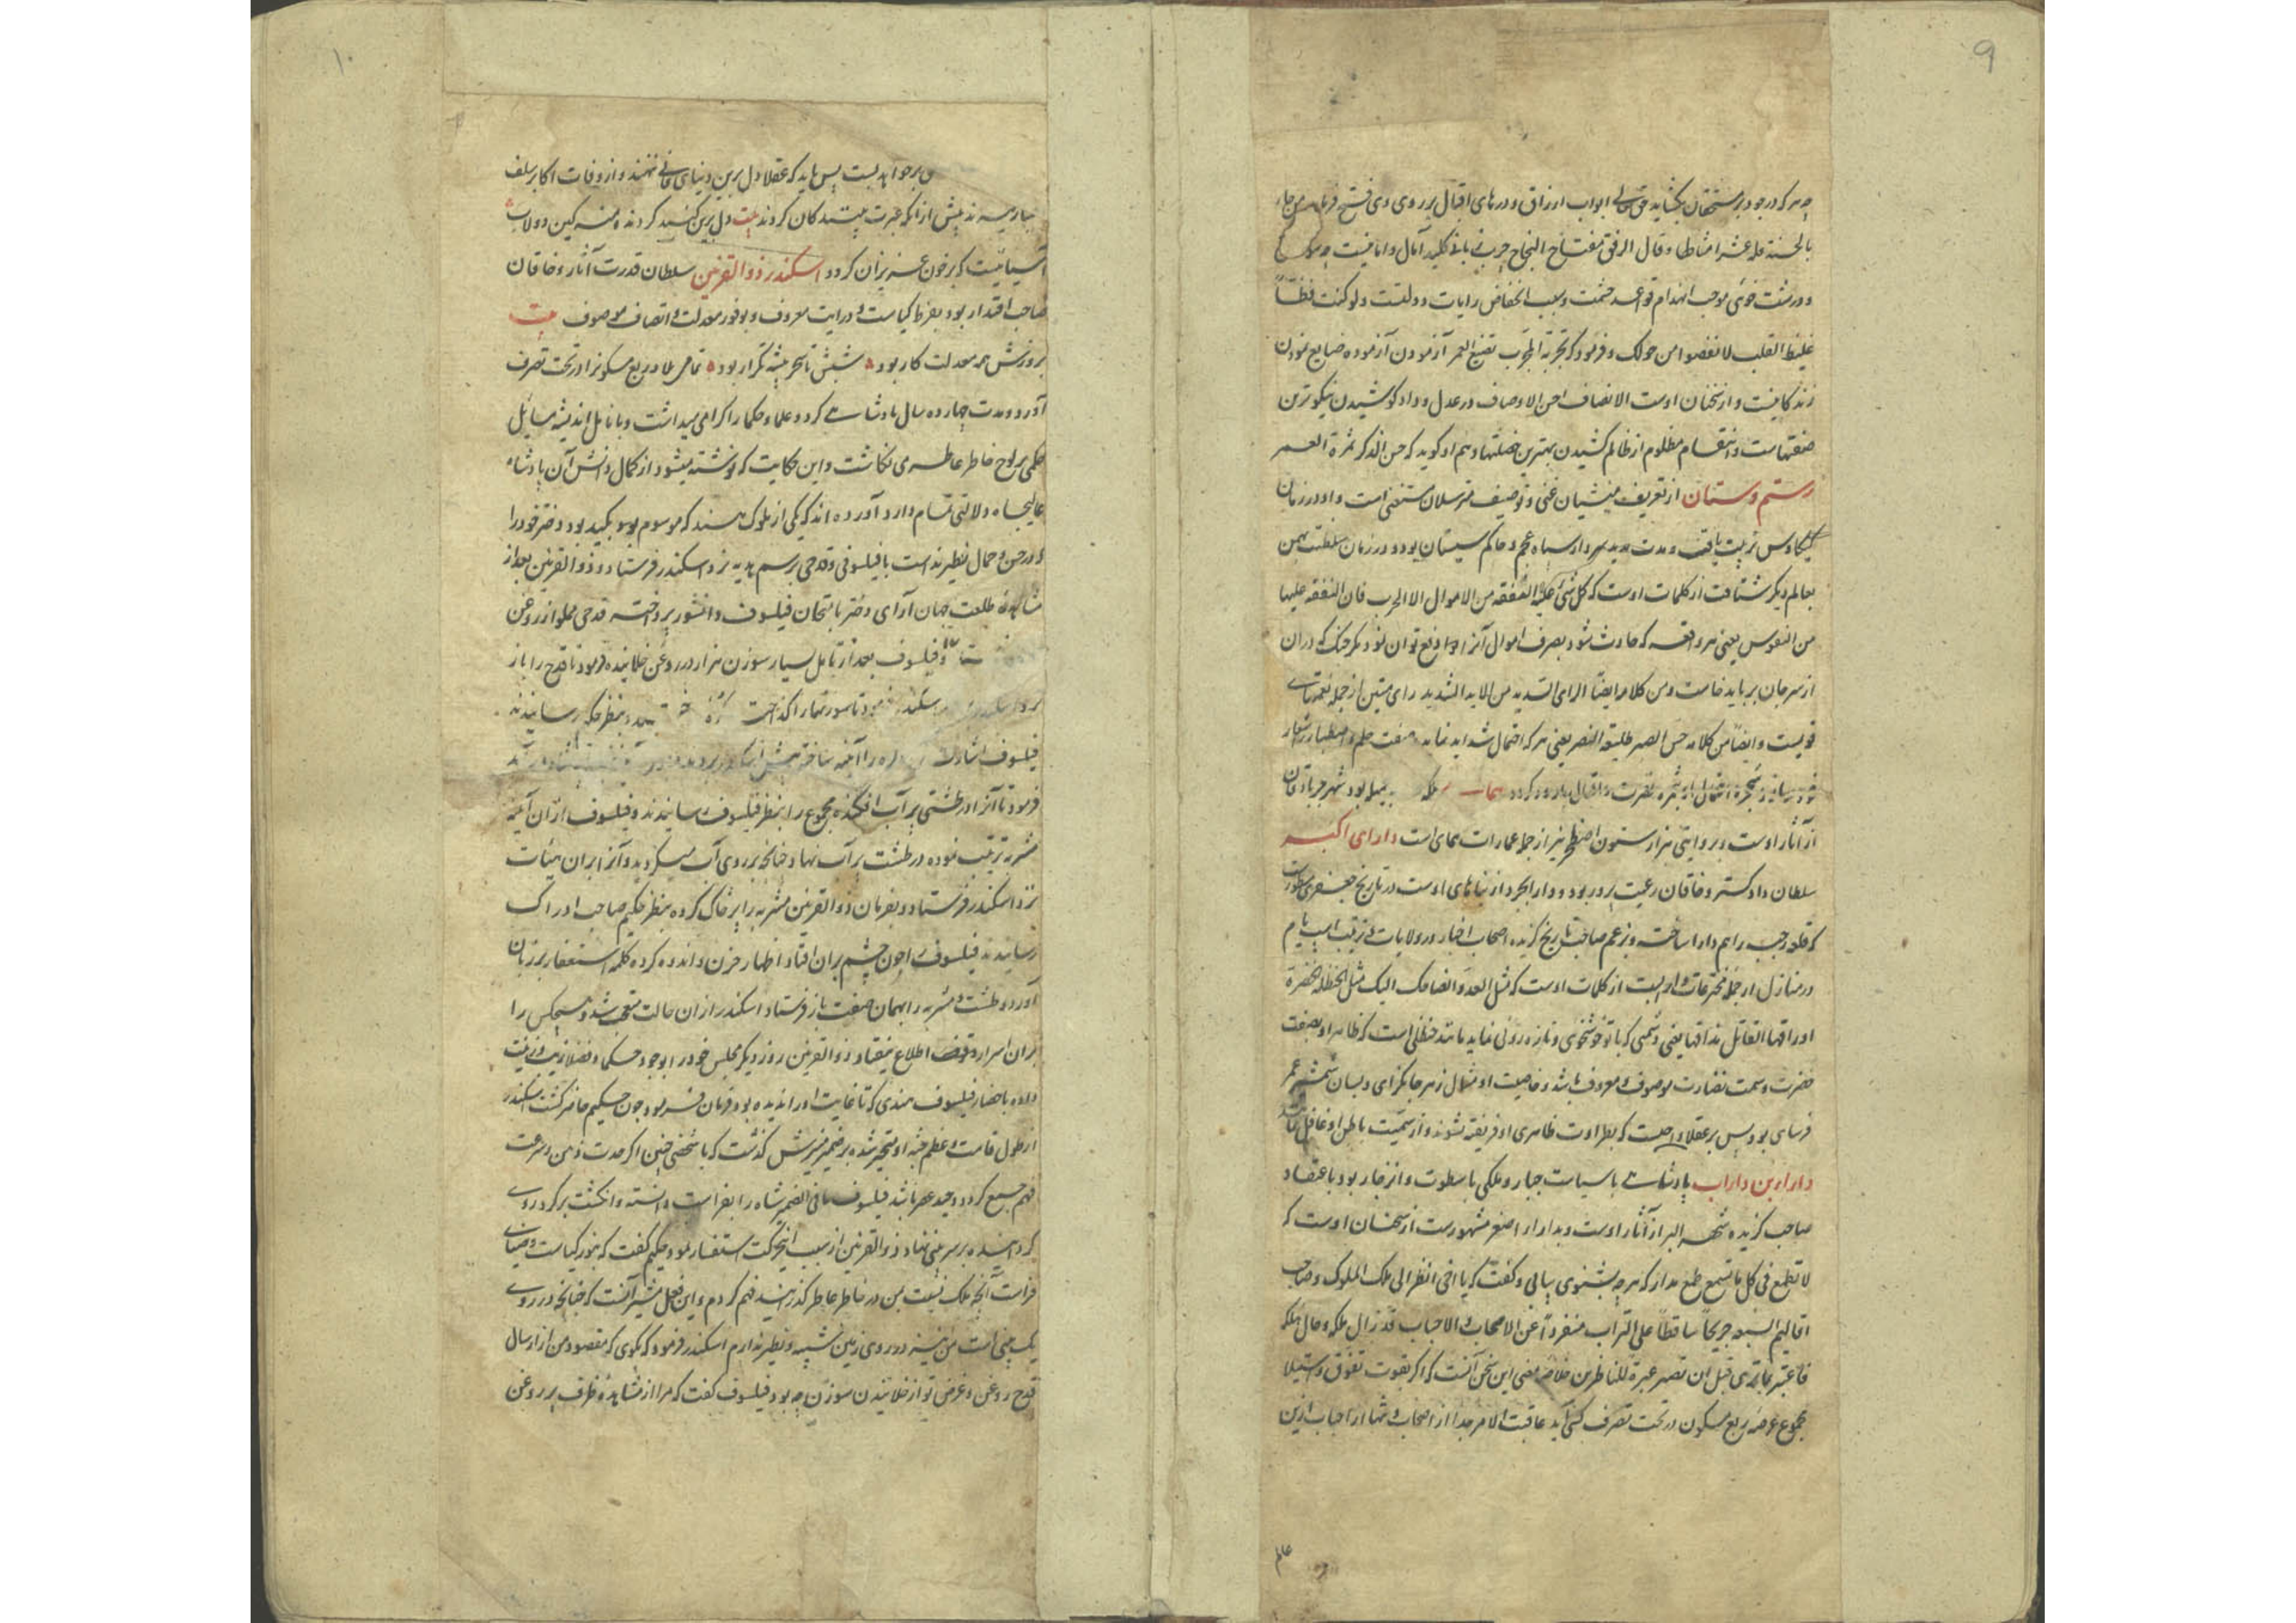 ۹
چه هر که در جود بر مستحقان بگشاید حق تعالی ابواب ارزاق و درهای اقبال بر روی وی فتح فرماید من جاء
بالحسنة فله عشر امثالها و قال الرفق مفتاح النجاح چربی کلید آمال و امانیست چه
و درشت خوئی موجب انهدام قواعد حشمت و سبب انخفاض رایات دولتست ولو کنت فظاً
غلیظ القلب لانفضوا من حولک و فرمود که تجربة المجرب تضیع العمر آزمودن آزموده ضایع نمودن
زندگانیست و از سخنان اوست الانصاف احسن الاوصاف در عدل و داد کوشیدن نیکوترین
صفتهاست و انتقام مظلوم از ظالم کشیدن بهترین خصلتها و هم او گوید که حسن الذکر ثمرة العمر
رستم دستان از تعریف منشیان غنی و توصیف مترسلان مستغنی است و او در زمان
کیکاوس تربیت یافت و مدت مدید سردار سپاه عجم و حاکم سیستان بود و در زمان سلطنت بهمن
بعالم دیگر شتافت از کلمات اوست که کل شیء النفقه من الاموال الا الحرب فان النفقه علیها
من النفوس یعنی هر واقعه که حادث شود بصرف اموال آنرا دفع توان نمود مگر جنگ که در آن
از سر جان بر باید خاست و من کلامه ایضاً الرای السدید من الاید الشدید رای متین از جمله نعمتهای
قویست و ایضاً من کلامه حسن الصبر طلیعه النصر یعنی هر که احتمال شداید نماید و صفت حلم و اصطبار شعار
بود شهر جربادقان
از آثار اوست و بروایتی هزار ستون اصطخر نیز از جمله عمارات همای است دارای اکبر
سلطان دادگستر و خاقان رعیت پرور بود و دارابجرد از بناهای اوست در تاریخ جعفری مسطورست
که قلعه را هم دارا ساخته و بزعم صاحب تاریخ گزیده اصحاب اخبار در ولایات ترتیب اسب یام
در منازل از جمله مخترعات او است از کلمات اوست که مثل العدو الضاحک الیک مثل الحنظلة الخضرة
اوراقها القاتل مذاقها یعنی دشمنی که با تو خوشخوی و تازه روئی نماید مانند حنظلی است که ظاهر او بصفت
خضرت و سمت نضارت موصوف و معروف باشد و خاصیت او مثال زهر جانگزای و بسان شمشیر عمر
فرسای بود پس بر عقلا واجبست که بطراوت ظاهری او فریفته نشوند و از سمیت باطن او غافل
دارا بن داراب پادشاهی با سیاست جبار و ملکی با سطوت و انزجار بود باعتقاد
صاحب گزیده شهر البر از آثار اوست و بدارا اصغر مشهورست از سخنان اوست که
لا تطمع فی کل ما تسمع طمع مدار که هر چه بشنوی بیابی و گفت که یا اخی انظر الی ملک الملوک و صاحب
اقالیم السبعه جریحاً ساقطاً علی التراب منفرداً عن الاصحاب و الاحباب قد زال ملکه و حان هلکه
فاعتبر بما تری قبل ان تصیر عبرة للناظرین خلاصه معنی این سخن آنست که اگر بقوت تفوق و استیلا
مجموع عرصه ربع مسکون در تحت تصرف کسی آید عاقبت الامر جدا از اصحاب و تنها از احباب ازین
۱۰
بر خواهد بست پس باید که عقلا دل برین دنیای فانی ننهند و از وفات اکابر سلف
پیش از آنکه عبرت پسندگان گردند بیت دل برین گنبد گردنده منه کین دولاب
آسیائیست که بر خون عزیزان گردد اسکندر ذوالقرنین سلطان قدرت آثار و خاقان
صاحب اقتدار بود بفرط کیاست و درایت معروف و بوفور معدلت و انصاف موصوف بیت
بروزش همه معدلت کار بود شبش تا سحر پیشه تکرار بود تمامی بلاد ربع مسکون را در تحت تصرف
آورد و مدت چهارده سال پادشاهی کرد و علما و حکما را گرامی میداشت و بانامل اندیشه مسایل
حکمی بر لوح خاطر عاطر می نگاشت و این حکایت که نوشته میشود از کمال دانش آن پادشاه
عالیجاه دلالتی تمام دارد آورده اند که یکی از ملوک هند که موسوم بود بکید بود دختر خود را
که در حسن و جمال نظیر نداشت با فیلسوفی و قدحی برسم هدیه نزد اسکندر فرستاد و ذوالقرنین بعد از
مشاهده طلعت جهان آرای دختر بامتحان فیلسوف دانشور پرداخته قدحی مملو از روغن
فیلسوف بعد از تامل بسیار سوزن هزار در روغن خلانیده فرمود تا قدح را باز
بنظر حکیم رسانیدند
فیلسوف آئینه ساخته پیش اسکندر
فرمود تا آنرا در طشتی پر آب افکنده مجموع را بنظر فیلسوف رسانیدند و فیلسوف از آن آئینه
مشربه ترتیب نموده در طشت پر آب نهاد چنانچه بر روی آب میگردید و آنرا بر آن هیئات
نزد اسکندر فرستاد و بفرمان ذوالقرنین مشربه را پر خاک کرده بنظر حکیم صاحب ادراک
رسانیدند فیلسوف را چون چشم بر آن افتاد اظهار حزن و اندوه کرده کلمه استغفار بر زبان
آورد و طشت و مشربه را بهمان صفت باز فرستاد اسکندر از آن حالت متعجب شد و هیچکس را
بر آن اسرار وقوف و اطلاع نیفتاد ذوالقرنین روز دیگر مجلس خود را بوجود حکما و فضلا زیب و زینت
داده باحضار فیلسوف هندی که تا غایت او را ندیده بود فرمان فرمود چون حکیم حاضر گشت اسکندر
از طول قامت و عظم جثه او متحیر شده بر ضمیر منیرش گذشت که با شخص چنین اگر حدت ذهن و سرعت
فهم جمع گردد وحید عصر باشد فیلسوف مافی الضمیر شاه را بفراست دانسته و انگشت بر گرد روی
گردانیده بر سر بینی نهاد ذوالقرنین از سبب این حرکت استفسار نمود حکیم گفت که بنور کیاست و ضیای
فراست آنچه ملک نسبت بمن در خاطر عاطر گذرانید فهم کردم و این فعل مشیر آنست که چنانچه در روی
یک بینی است من نیز در روی زمین شبیه و نظیر ندارم اسکندر فرمود که بگوی که مقصود من از ارسال
قدح روغن و غرض تو از خلانیدن سوزن چه بود فیلسوف گفت که مرا از مشاهده ظرف پر روغن